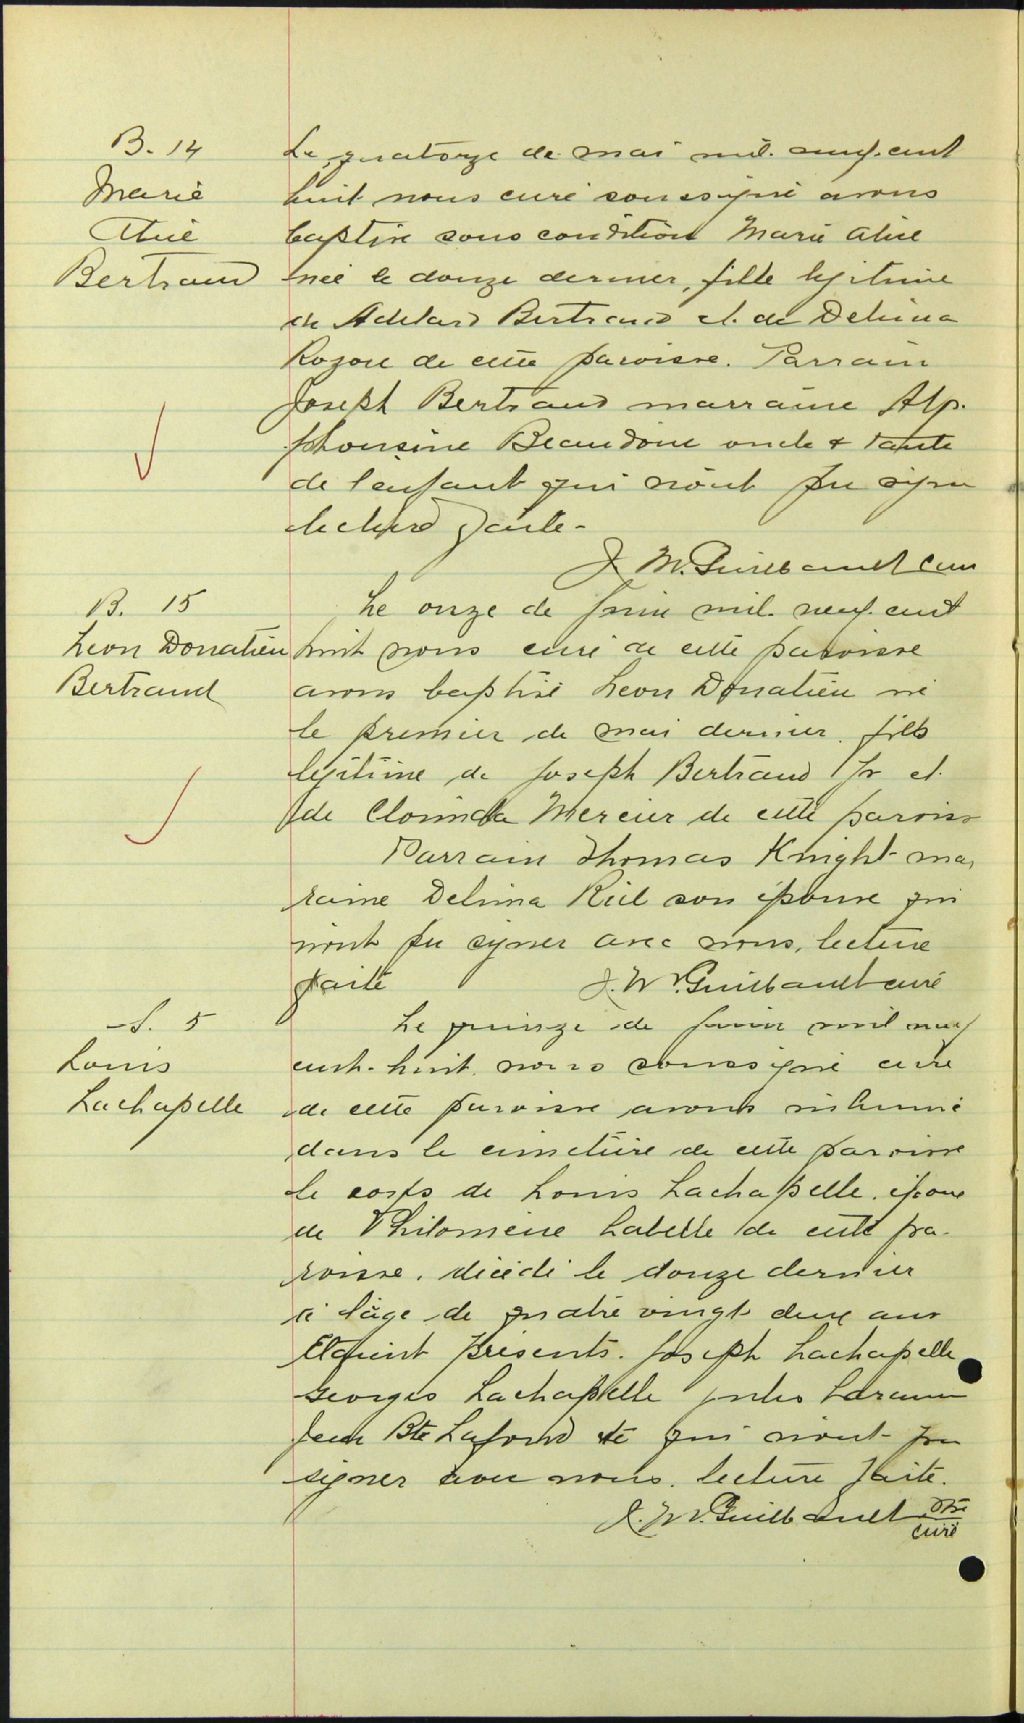 B. 14
Marie
Alice
Bertrand
Le quatorze de mai mil neuf cent
huit nous curé soussigné avons
baptisé sous condition Marie Alice
née le douze dernier, fille legitime
de Adelard Bertrand et de Delima
Rozon de cette paroisse. Parrain
Joseph Bertrand marraine Alp-
phonsine Beaudoin oncle & tante
de l'enfant qui n'ont pu signer
lecture faite.
J. W. Guilbault curé
B. 15
Leon Donatien
Bertrand
Le onze de juin mil neuf cent
huit nous curé de cette paroisse
avons baptisé Leon Donatien né
le premier de mai dernier, fils
legitime de Joseph Bertrand Jr et
de Clorinda Mercier de cette paroisse
Parrain Thomas Knight mar
raine Delima Riel son épouse qui
n'ont pu signer avec nous, lecture
faite J. W. Guilbault curé
S. 5
Louis
Lachapelle
Le quinze de juin mil neuf
cent-huit nous soussigné curé
de cette paroisse avons inhumé
dans le cimetière de cette paroisse
le corps de Louis Lachapelle, époux
de Philomène Labelle de cette pa-
roisse, décédé le douze dernier
à l'âge de quatre vingt deux ans
Etaient présents. Joseph Lachapelle
Georges Lachapelle Jules
Jean Bte Lafond & qui n'ont pu
signer avec nous. lecture faite.
J. W. Guilbault Ptre
curé